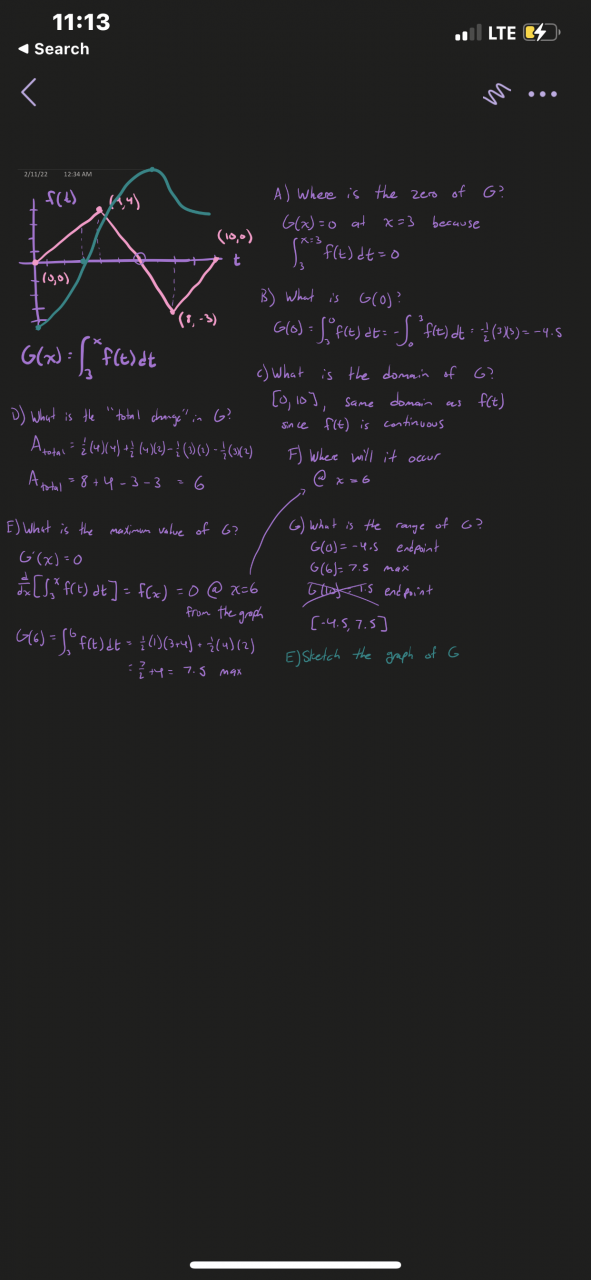 11:13
LTE
◀ Search
2/11/22 12:34 AM
f(t)
(4,4)
(10,0)
t
(0,0)
(8,-3)
G(x) = ∫₃ˣ f(t) dt
A) Where is the zero of G?
G(x)=0 at x=3 because
∫₃ˣ⁼³ f(t) dt = 0
B) What is G(0)?
G(0) = ∫₃⁰ f(t) dt = -∫₀³ f(t) dt = ½(3)(3) = -4.5
C) What is the domain of G?
[0,10], same domain as f(t)
since f(t) is continuous
D) What is the "total change" in G?
A total = ½(4)(4) + ½(4)(2) - ½(3)(2) - ½(3)(2)
A total = 8 + 4 - 3 - 3 = 6
F) Where will it occur
@ x=6
E) What is the maximum value of G?
G'(x) = 0
d/dx [∫₃ˣ f(t) dt] = f(x) = 0 @ x=6
from the graph
G(6) = ∫₃⁶ f(t) dt = ½(1)(3+4) + ½(4)(2)
= 7/2 + 4 = 7.5 max
G) What is the range of G?
G(0) = -4.5 endpoint
G(6) = 7.5 max
G(10) = 1.5 endpoint
[-4.5, 7.5]
E) Sketch the graph of G